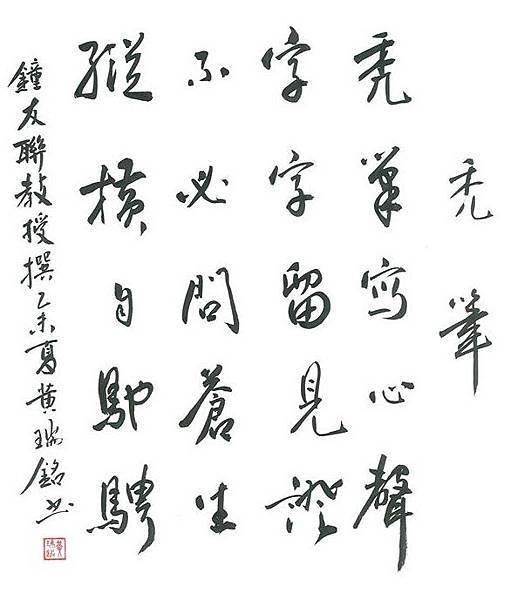 禿筆
禿筆寫心聲
字字留見證
不必問蒼生
縱橫自馳騁
鐘友聯教授撰乙未夏黃瑞銘書
黃瑞銘